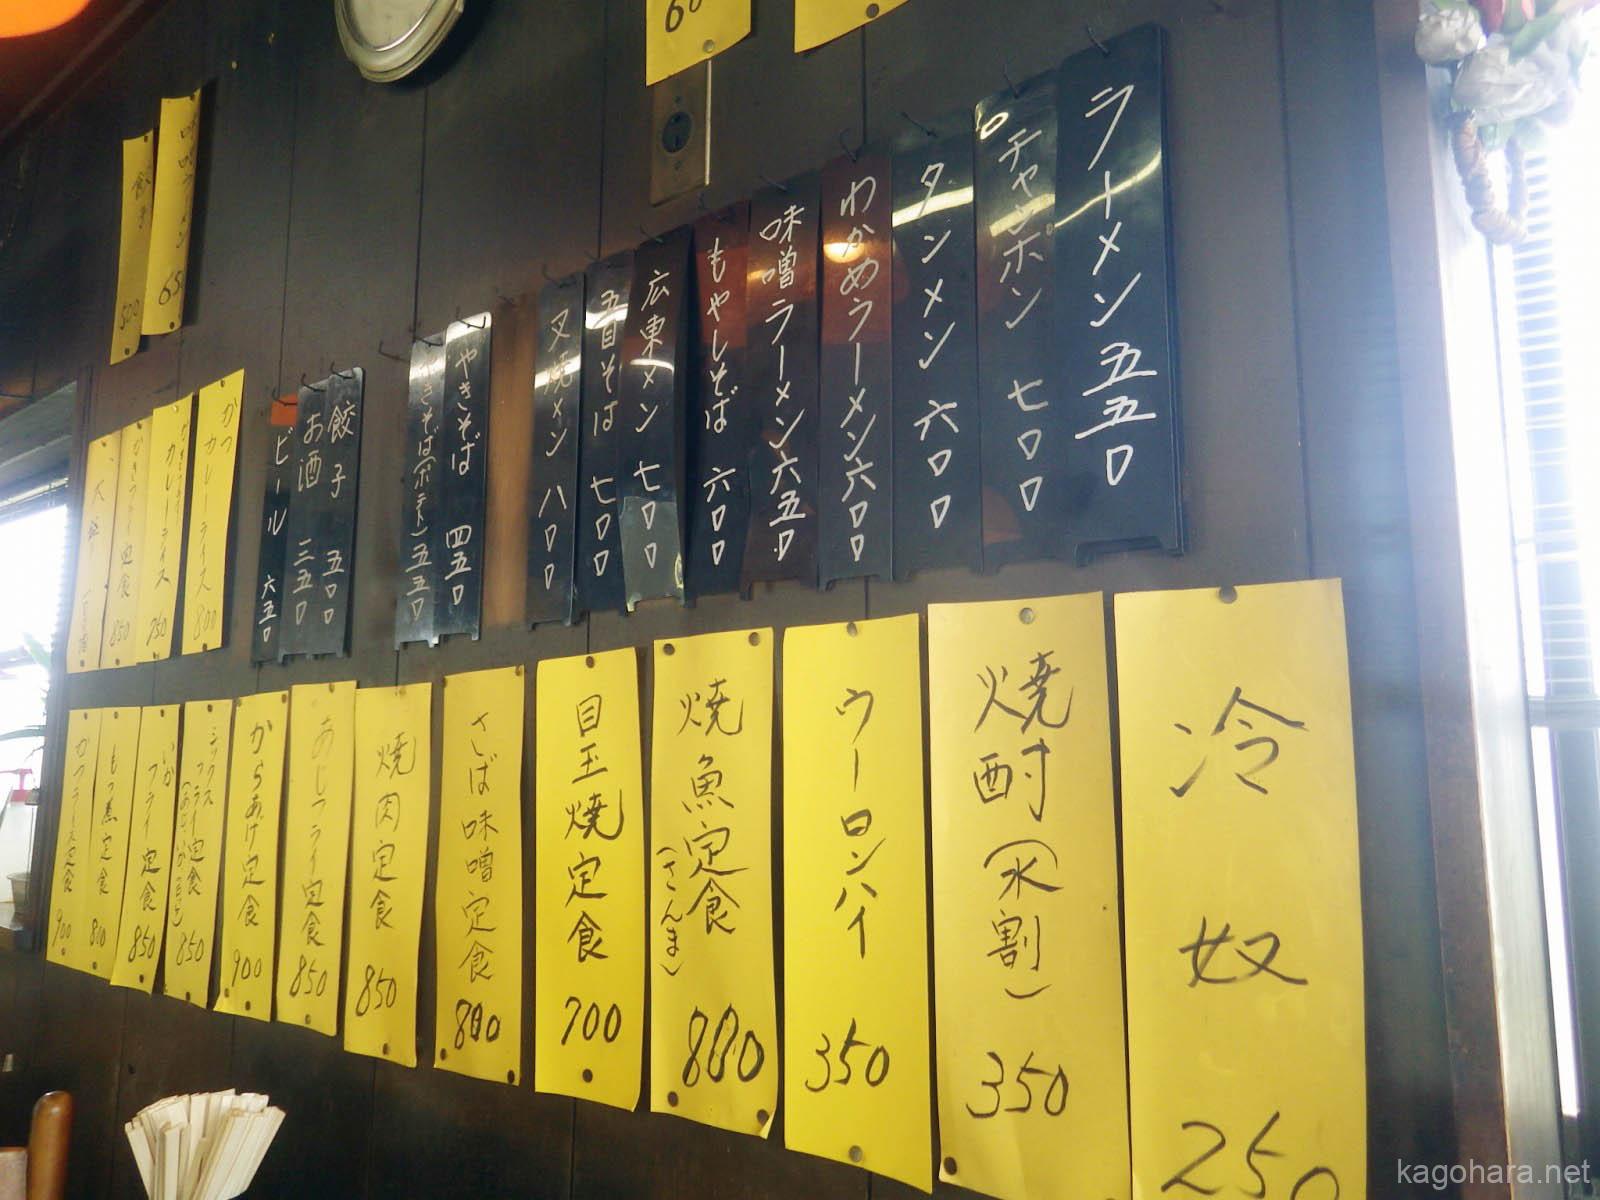 ラーメン 五五〇
チャンポン 七〇〇
タンメン 六〇〇
わかめラーメン 六〇〇
味噌ラーメン 六五〇
もやしそば 六〇〇
広東メン 七〇〇
五目そば 七〇〇
叉焼メン 八〇〇
やきそば 四五〇
やきそば(ポテト) 五五〇
餃子 五〇〇
お酒 三五〇
ビール 六五〇
味噌ラーメン 650
餃子 500
かつカレーライス 800
カレーライス 750
定食 850
冷奴 250
焼酎(水割) 350
ウーロンハイ 350
焼魚定食(さんま) 880
目玉焼定食 700
さば味噌定食 800
焼肉定食 850
あじフライ定食 850
からあげ定食 900
ミックスフライ定食 850
いかフライ定食 850
もつ煮定食 800
かつライス定食 900
kagohara.net